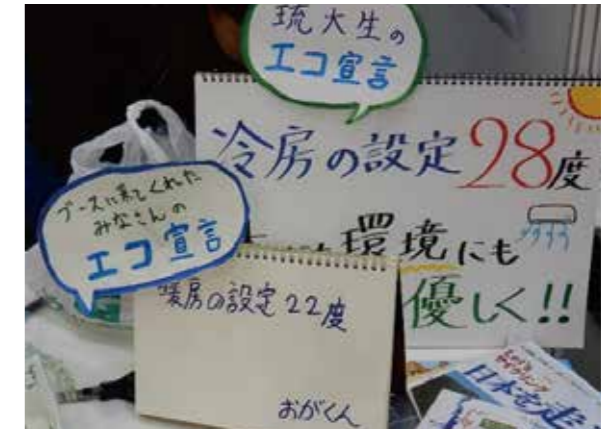 琉大生の
エコ宣言
冷房の設定28度
環境にも
優しく!!
ブースに来てくれた
みなさんの
エコ宣言
暖房の設定22度
おがくん
日本を走